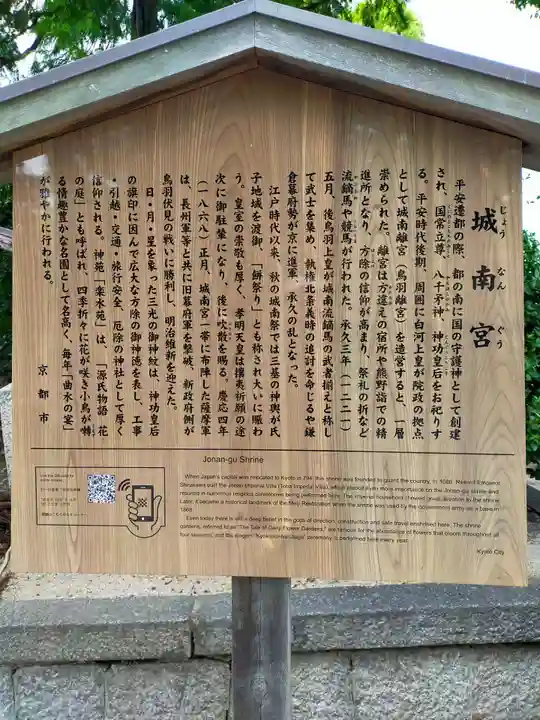 城南宮
じょうなんぐう
平安遷都の際、都の南に国の守護神として創建
され、国常立尊、八千矛神、神功皇后をお祀りす
る。平安時代後期、周囲に白河上皇が院政の拠点
として城南離宮(鳥羽離宮)を造営すると、一層
崇められた。離宮は方違えの宿所や熊野詣での精
進所となり、方除の信仰が高まり、祭礼の折など
流鏑馬や競馬が行われた。承久三年(一二二一)
五月、後鳥羽上皇が城南流鏑馬の武者揃えと称し
て武士を集め、執権北条義時の追討を命じるや鎌
倉幕府勢が京に進軍、承久の乱となった。
江戸時代以来、秋の城南祭では三基の神輿が氏
子地域を渡御、「餅祭り」とも称され大いに賑わ
う。皇室の崇敬も厚く、孝明天皇は攘夷祈願の途
次に御駐輦になり、後に吹散を賜る。慶応四年
(一八六八)正月、城南宮一帯に布陣した薩摩軍
は、長州軍等と共に旧幕府軍を撃破、新政府側が
鳥羽伏見の戦いに勝利し、明治維新を迎えた。
日・月・星を象った三光の御神紋は、神功皇后
の旗印に因んで広大な方除の御神徳を表し、工事
・引越・交通・旅行安全、厄除の神社として厚く
信仰される。神苑「楽水苑」は、「源氏物語 花
の庭」とも呼ばれ、四季折々に花が咲き小鳥が囀
る情趣豊かな名園として名高く、毎年「曲水の宴」
が雅やかに行われる。
京都市
Jonan-gu Shrine
When Japan's capital was relocated to Kyoto in 794, this shrine was founded to guard the country. In 1086, Retired Emperor
Shirakawa built the Jonan Imperial Villa (Toba Imperial Villa), which placed even more importance on the Jonan-gu shrine and
resulted in numerous religious ceremonies being performed here. The imperial household showed great devotion to the shrine.
Later, it became a historical landmark of the Meiji Restoration when the shrine was used by the government army as a base in
1868.
Even today there is still a deep belief in the gods of direction, construction and safe travel enshrined here. The shrine
gardens, referred to as "The Tale of Genji Flower Gardens," are famous for the abundance of flowers that bloom throughout all
four seasons, and the elegant "Kyokusui-no-utage" ceremony is performed here every year.
Kyoto City